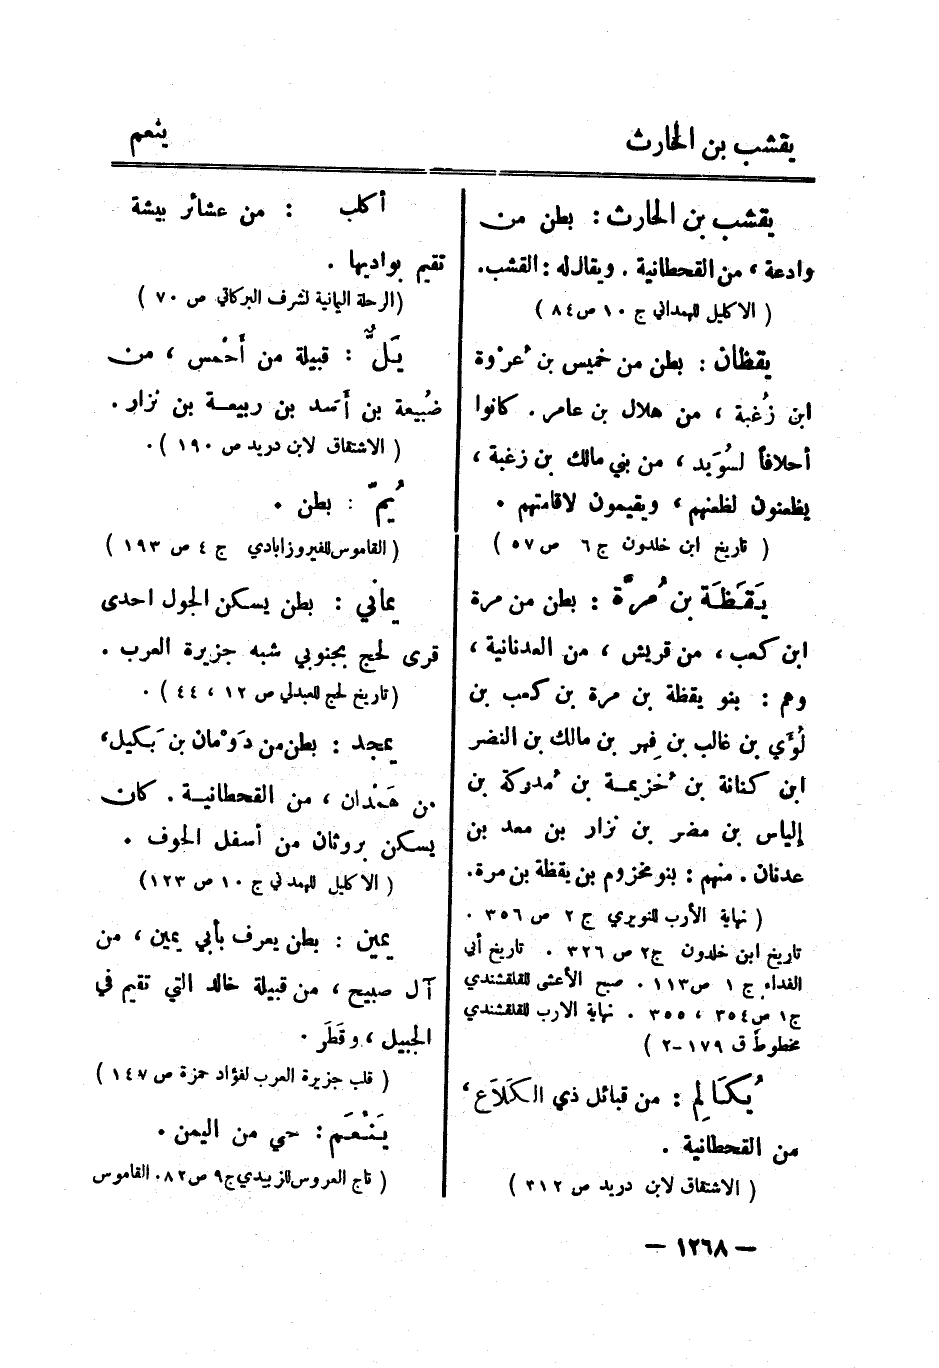 يقشب بن الحارث
ينعم
يقشب بن الحارث : بطن من
وادعة ، من القحطانية . ويقال له : القشب .
( الاكليل للهمداني ج ١٠ ص ٨٤ )
يقظان : بطن من خميس بن عُرْوة
ابن زُغبة ، من هلال بن عامر . كانوا
أحلافاً لسُوَيد ، من بني مالك بن زغبة ،
يظعنون لظعنهم ، ويقيمون لاقامتهم .
( تاريخ ابن خلدون ج ٦ ص ٥٧ )
يَقَظَة بن مُرَّة : بطن من مرة
ابن كعب ، من قريش ، من العدنانية ،
وهم : بنو يقظة بن مرة بن كعب بن
لُوَي بن غالب بن فِهر بن مالك بن النضر
ابن كنانة بن خُزيمة بن مُدركة بن
إلياس بن مضر بن نزار بن معد بن
عدنان . منهم : بنو مخزوم بن يقظة بن مرة .
( نهاية الأرب للنويري ج ٢ ص ٣٥٦ .
تاريخ ابن خلدون ج ٢ ص ٣٢٦ . تاريخ أبي
الفداء ج ١ ص ١١٣ . صبح الأعشى للقلقشندي
ج ١ ص ٣٥٤ ، ٣٥٥ . نهاية الارب للقلقشندي
مخطوط ق ١٧٩-٢ )
يُكَالِم : من قبائل ذي الكَلَاع ،
من القحطانية .
( الاشتقاق لابن دريد ص ٣١٢ )
أكلب : من عشائر بيشة
تقيم بواديها .
( الرحلة اليمانية لشرف البركاتي ص ٧٠ )
يَلّ : قبيلة من أَحْمس ، من
ضُبيعة بن أَسد بن ربيعة بن نزار .
( الاشتقاق لابن دريد ص ١٩٠ ) .
يُمّ : بطن .
( القاموس للفيروزابادي ج ٤ ص ١٩٣ )
يماني : بطن يسكن الجول احدى
قرى لحج بجنوبي شبه جزيرة العرب .
( تاريخ لحج للعبدلي ص ١٢ ، ٤٤ ) .
يمجد : بطن من دَوْمان بن بَكيل ،
من هَمْدان ، من القحطانية . كان
يسكن بروثان من أسفل الجوف .
( الاكليل للهمداني ج ١٠ ص ١٢٣ )
يمين : بطن يعرف بأبي يمين ، من
آل صبيح ، من قبيلة خالد التي تقيم في
الجبيل ، وقَطَر .
( قلب جزيرة العرب لفؤاد حمزة ص ١٤٧ )
يَنْعَم : حي من اليمن .
( تاج العروس للزبيدي ج ٩ ص ٨٢ . القاموس
— ١٢٦٨ —